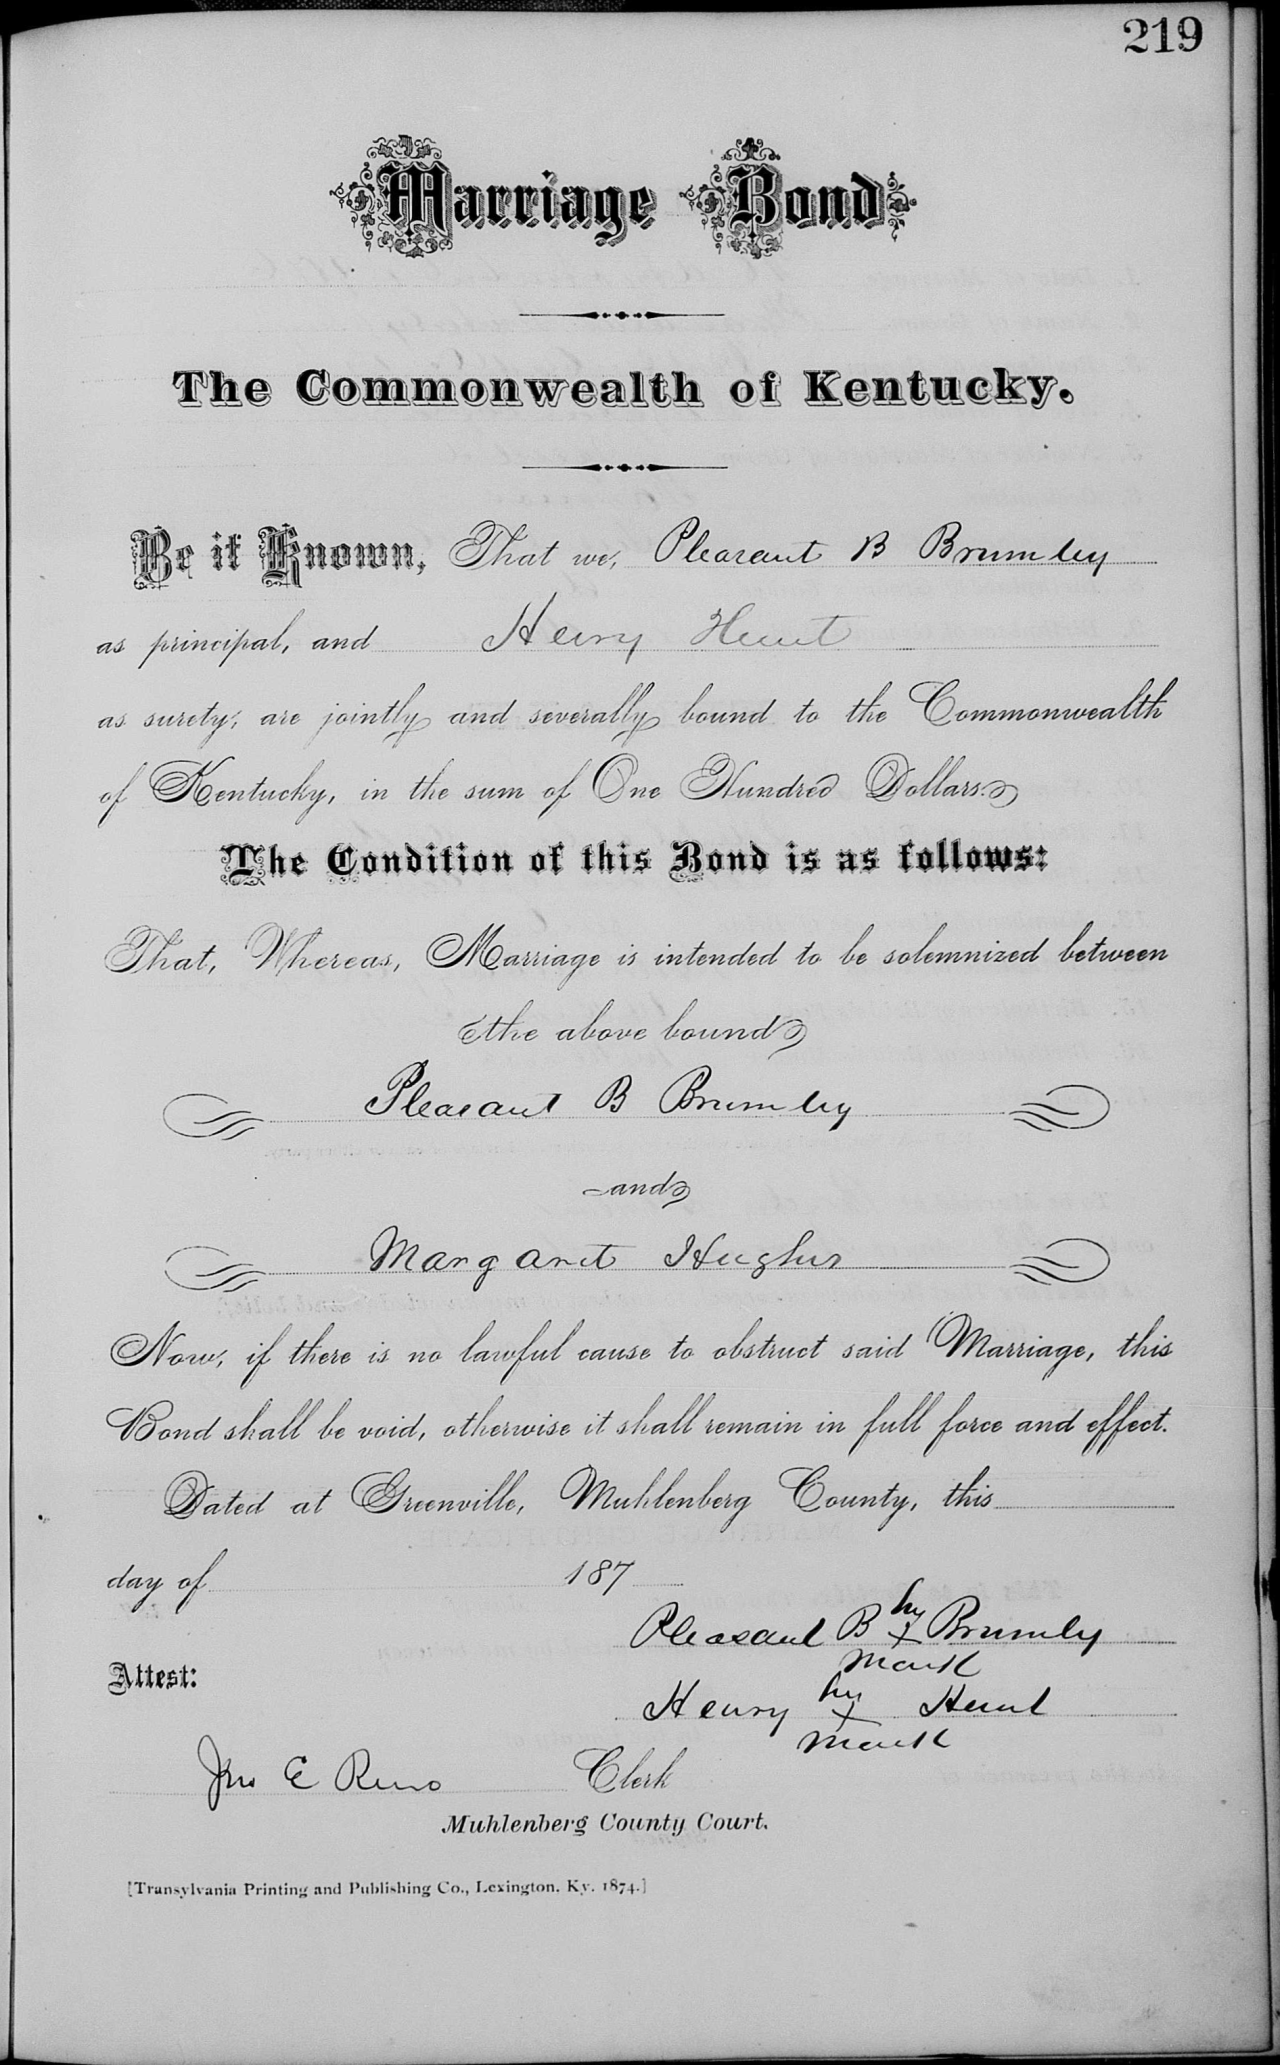 219
Marriage Bond
The Commonwealth of Kentucky.
Be it Known, That we, Pleasant B Brumley
as principal, and Henry Hunt
as surety, are jointly and severally bound to the Commonwealth
of Kentucky, in the sum of One Hundred Dollars.
The Condition of this Bond is as follows:
That, Whereas, Marriage is intended to be solemnized between
the above bound
Pleasant B Brumley
and
Margaret Hughes
Now, if there is no lawful cause to obstruct said Marriage, this
Bond shall be void, otherwise it shall remain in full force and effect.
Dated at Greenville, Muhlenberg County, this
day of 187
Pleasant B his x Brumley
mark
Attest:
Henry his x Hunt
mark
Jno E Reno Clerk
Muhlenberg County Court.
[Transylvania Printing and Publishing Co., Lexington, Ky. 1874.]